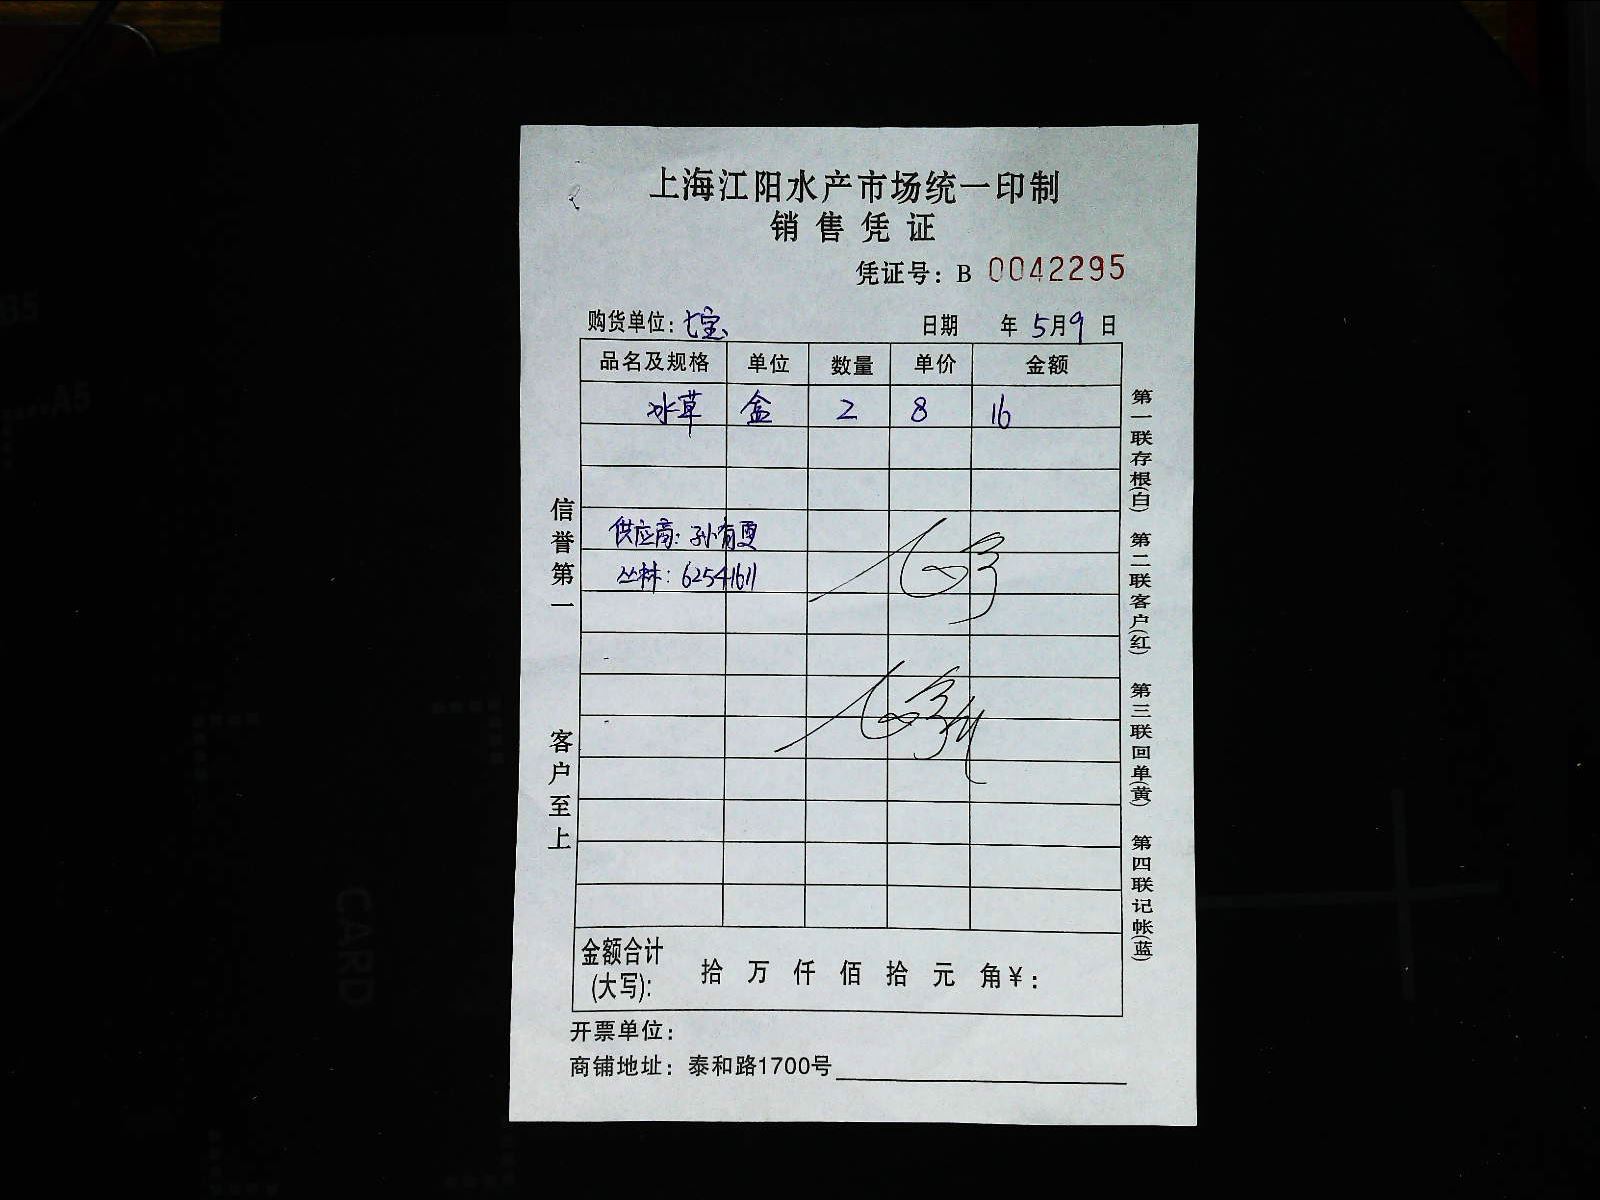 上海江阳水产市场统一印制
销售凭证
凭证号：B 0042295
购货单位：七宝 日期 年 5月9日
品名及规格 单位 数量 单价 金额
水草 盒 2 8 16
供应商：孙有更
丛林：62541611
信誉第一
客户至上
第一联存根(白)
第二联客户(红)
第三联回单(黄)
第四联记帐(蓝)
金额合计
(大写)： 拾 万 仟 佰 拾 元 角￥：
开票单位：
商铺地址：泰和路1700号
CARD
A5